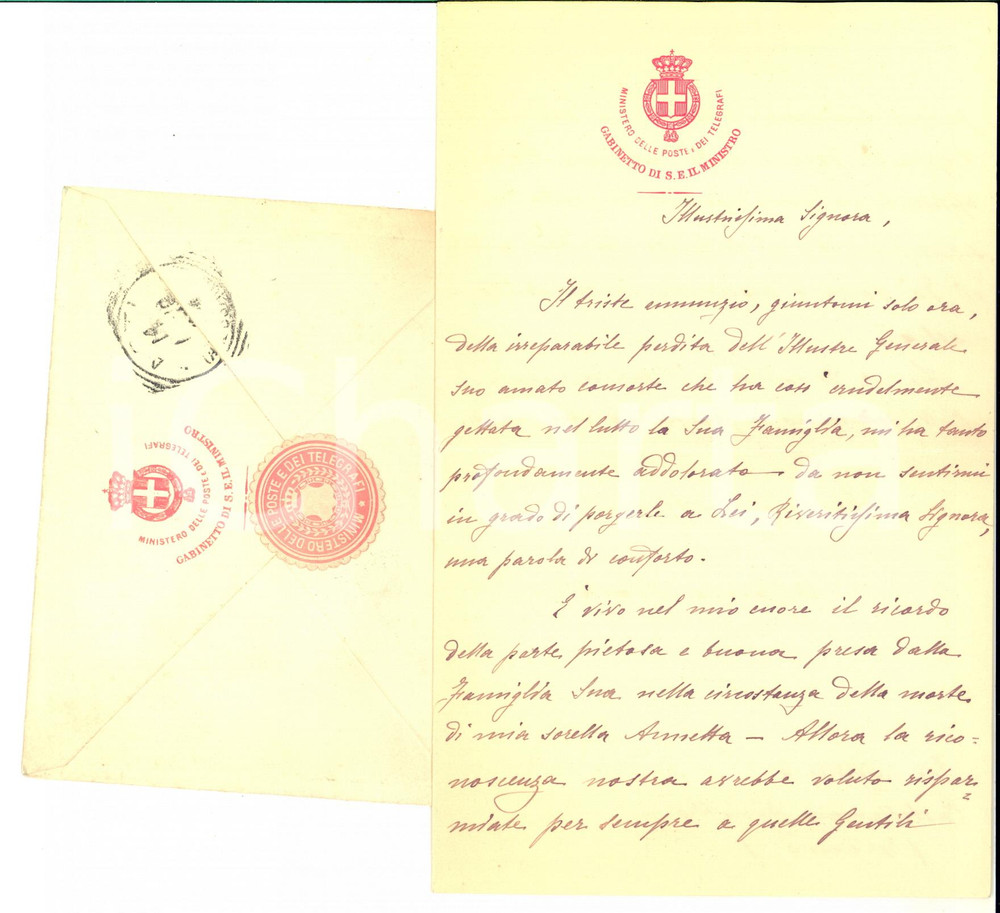 MINISTERO DELLE POSTE E DEI TELEGRAFI
GABINETTO DI S. E. IL MINISTRO
Illustrissima Signora,
Il triste annunzio, giuntomi solo ora,
della irreparabile perdita dell'Illustre Generale
suo amato consorte che ha così crudelmente
gettata nel lutto la Sua Famiglia, mi ha tanto
profondamente addolorato da non sentirmi
in grado di porgerle a Lei, Riveritissima Signora,
una parola di conforto.
È vivo nel mio cuore il ricordo
della parte pietosa e buona presa dalla
Famiglia Sua nella circostanza della morte
di mia sorella Annetta – Allora la rico-
noscenza nostra avrebbe voluto rispar=
miate per sempre a quelle Gentili
MINISTERO DELLE POSTE E DEI TELEGRAFI
GABINETTO DI S. E. IL MINISTRO
MINISTERO DELLE POSTE E DEI TELEGRAFI